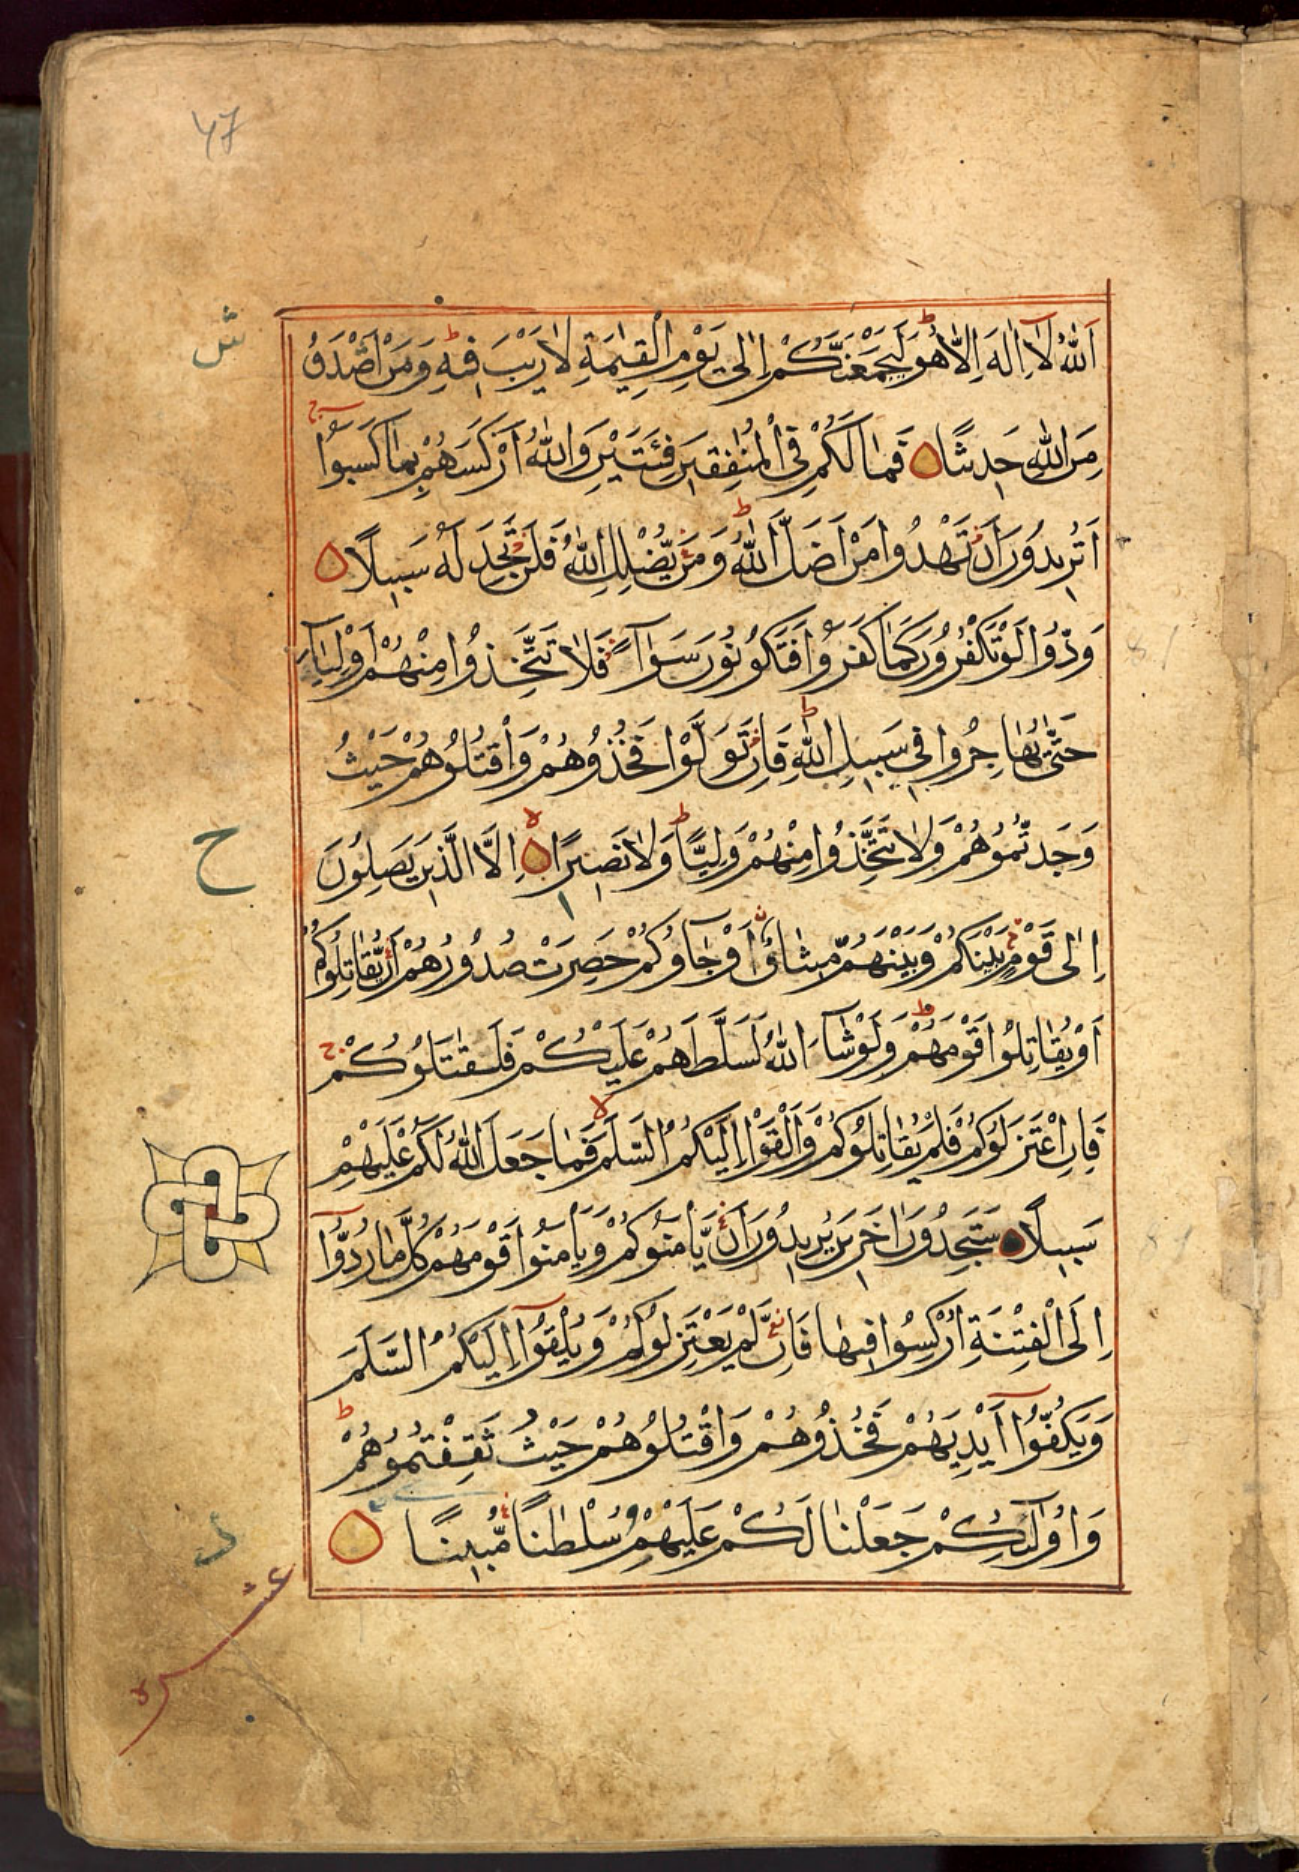 ۴۷
اَللّٰهُ لَآ اِلٰهَ اِلَّا هُوَ ؕ لَيَجْمَعَنَّكُمْ اِلٰى يَوْمِ الْقِيٰمَةِ لَا رَيْبَ فِيْهِ ؕ وَمَنْ اَصْدَقُ
مِنَ اللّٰهِ حَدِيْثًا فَمَا لَكُمْ فِى الْمُنٰفِقِيْنَ فِئَتَيْنِ وَاللّٰهُ اَرْكَسَهُمْ بِمَا كَسَبُوْا ؕ
اَتُرِيْدُوْنَ اَنْ تَهْدُوْا مَنْ اَضَلَّ اللّٰهُ ؕ وَمَنْ يُّضْلِلِ اللّٰهُ فَلَنْ تَجِدَ لَهٗ سَبِيْلًا
وَدُّوْا لَوْ تَكْفُرُوْنَ كَمَا كَفَرُوْا فَتَكُوْنُوْنَ سَوَآءً فَلَا تَتَّخِذُوْا مِنْهُمْ اَوْلِيَآءَ
حَتّٰى يُهَاجِرُوْا فِىْ سَبِيْلِ اللّٰهِ ؕ فَاِنْ تَوَلَّوْا فَخُذُوْهُمْ وَاقْتُلُوْهُمْ حَيْثُ
وَجَدْتُّمُوْهُمْ وَلَا تَتَّخِذُوْا مِنْهُمْ وَلِيًّا ؕ وَلَا نَصِيْرًا اِلَّا الَّذِيْنَ يَصِلُوْنَ
ح
اِلٰى قَوْمٍ بَيْنَكُمْ وَبَيْنَهُمْ مِّيْثَاقٌ اَوْ جَآءُوْكُمْ حَصِرَتْ صُدُوْرُهُمْ اَنْ يُّقَاتِلُوْكُمْ
اَوْ يُقَاتِلُوْا قَوْمَهُمْ ؕ وَلَوْ شَآءَ اللّٰهُ لَسَلَّطَهُمْ عَلَيْكُمْ فَلَقٰتَلُوْكُمْ ج
فَاِنِ اعْتَزَلُوْكُمْ فَلَمْ يُقَاتِلُوْكُمْ وَاَلْقَوْا اِلَيْكُمُ السَّلَمَ فَمَا جَعَلَ اللّٰهُ لَكُمْ عَلَيْهِمْ
سَبِيْلًا سَتَجِدُوْنَ اٰخَرِيْنَ يُرِيْدُوْنَ اَنْ يَّاْمَنُوْكُمْ وَيَاْمَنُوْا قَوْمَهُمْ كُلَّمَا رُدُّوْٓا
اِلَى الْفِتْنَةِ اُرْكِسُوْا فِيْهَا فَاِنْ لَّمْ يَعْتَزِلُوْكُمْ وَيُلْقُوْٓا اِلَيْكُمُ السَّلَمَ
وَيَكُفُّوْٓا اَيْدِيَهُمْ فَخُذُوْهُمْ وَاقْتُلُوْهُمْ حَيْثُ ثَقِفْتُمُوْهُمْ ؕ
وَاُولٰٓئِكُمْ جَعَلْنَا لَكُمْ عَلَيْهِمْ سُلْطٰنًا مُّبِيْنًا